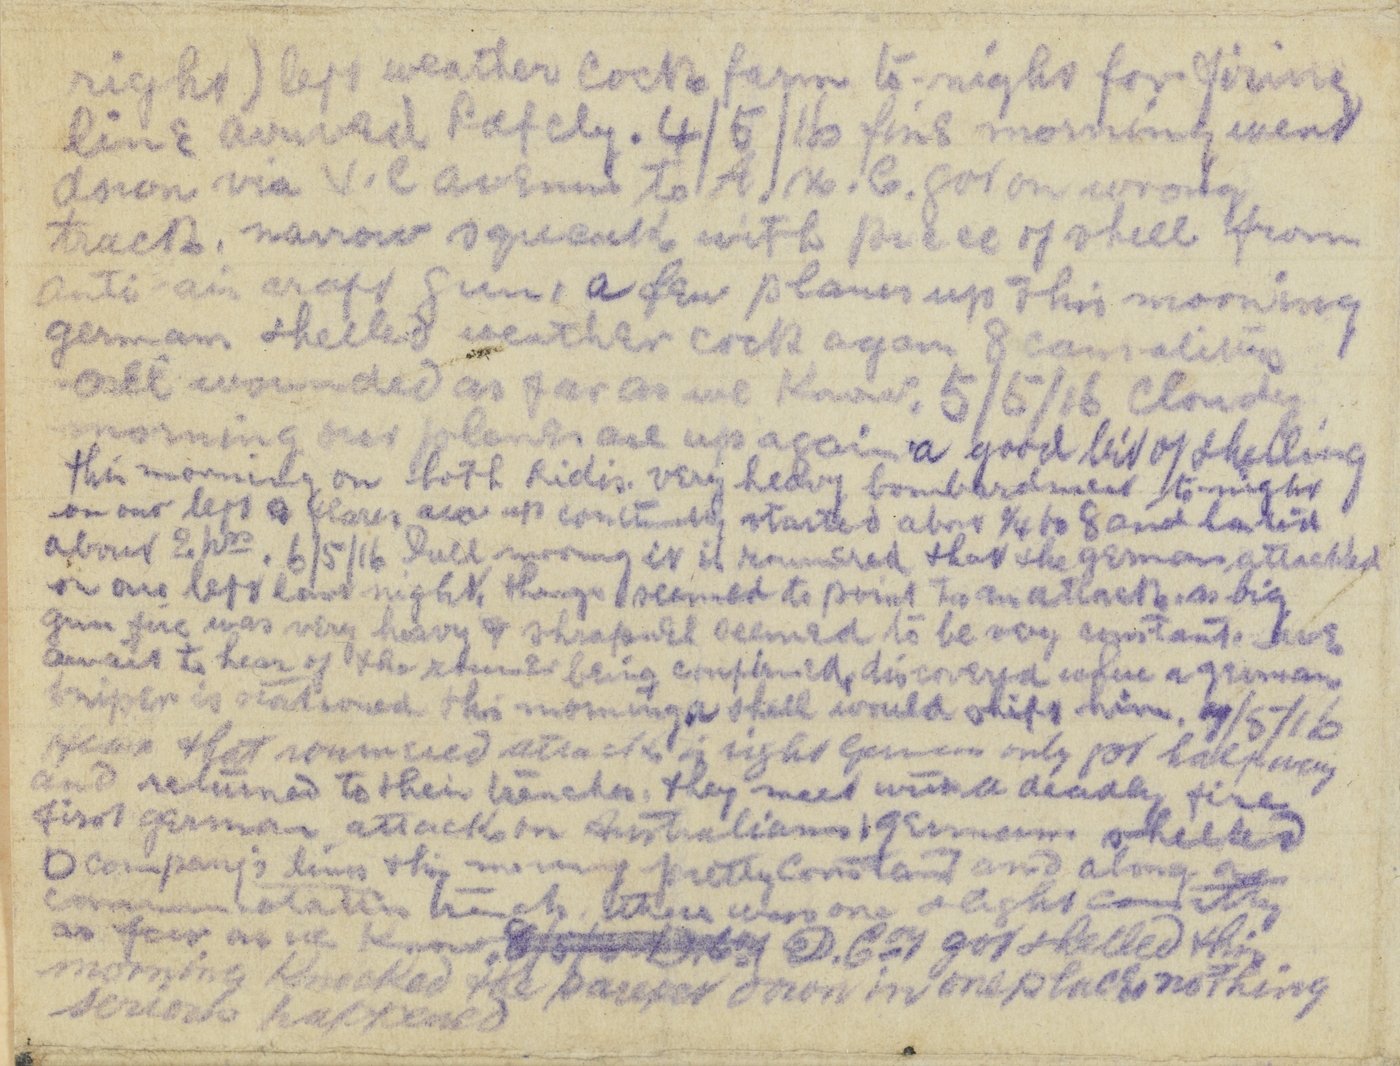 right) left weather Cock farm to-night for firing
line arrived Safely. 4/5/16 fine morning went
down via V.C avenue to H.C. got on wrong
track, narrow squeak with piece of shell from
anti-air craft gun, a few planes up this morning
german shelled weather cock again 8 causalities
all wounded as far as we know. 5/5/16 Cloudy
morning our planes are up again a good bit of shelling
this morning on both Sides. very heavy bombardment to-night
on our left flares are up started about 1/4 to 8 and lasted
about 2 pm. 6/5/16 Dull morning it is roumered that the germans attacked
on our left last night, things seemed to point to an attack. as big
gun fire was very heavy & shrapnel seemed to be very constant. we
await to hear of the roumer being confirmed, discovered where a german
sniper is stationed this morning a shell would shift him. 7/5/16
that roumered attack is right Germans only got half way
and returned to their trenches. they meet with a deadly fire
first german attack on Australians, germans shelled
D company's lines this morning pretty Constant and along
communctation trench. there was one slight
as far as we Know. D. Coy got shelled this
morning Knocked the parapet down in one place nothing
serious happened